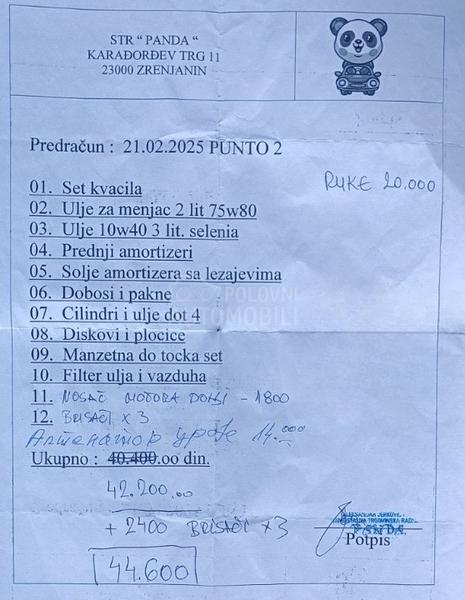 STR “ PANDA “
KARAĐORĐEV TRG 11
23000 ZRENJANIN
Predračun : 21.02.2025 PUNTO 2
RUKE 20.000
01. Set kvacila
02. Ulje za menjac 2 lit 75w80
03. Ulje 10w40 3 lit. selenia
04. Prednji amortizeri
05. Solje amortizera sa lezajevima
06. Dobosi i pakne
07. Cilindri i ulje dot 4
08. Diskovi i plocice
09. Manzetna do tocka set
10. Filter ulja i vazduha
11. NOSAČ MOTORA DONJI - 1800
12. BRISAČI X 3
14.000
Ukupno : 40.400.oo din.
42.200.00
+ 2400 BRISAČI X 3
44.600
PANDA
Potpis
POLOVNI
AUTOMOBILI